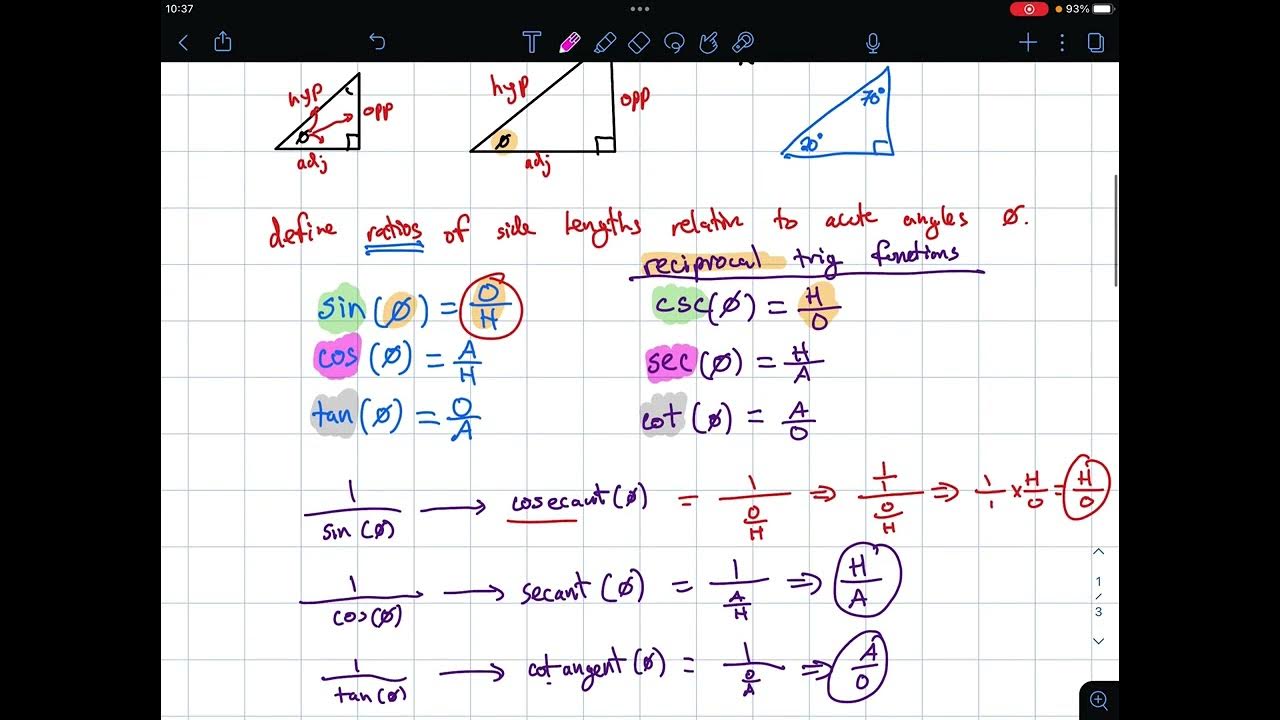 10:37
93%
T
hyp
opp
Ø
adj
hyp
opp
Ø
adj
70°
20°
define ratios of side lengths relative to acute angles Ø.
reciprocal trig functions
sin(Ø) = O/H
csc(Ø) = H/O
cos(Ø) = A/H
sec(Ø) = H/A
tan(Ø) = O/A
cot(Ø) = A/O
1/sin(Ø) → cosecant(Ø) = 1/(O/H) ⇒ (1/1)/(O/H) ⇒ 1/1 × H/O = H/O
1/cos(Ø) → secant(Ø) = 1/(A/H) ⇒ H/A
1/tan(Ø) → cotangent(Ø) = 1/(O/A) ⇒ A/O
1/3